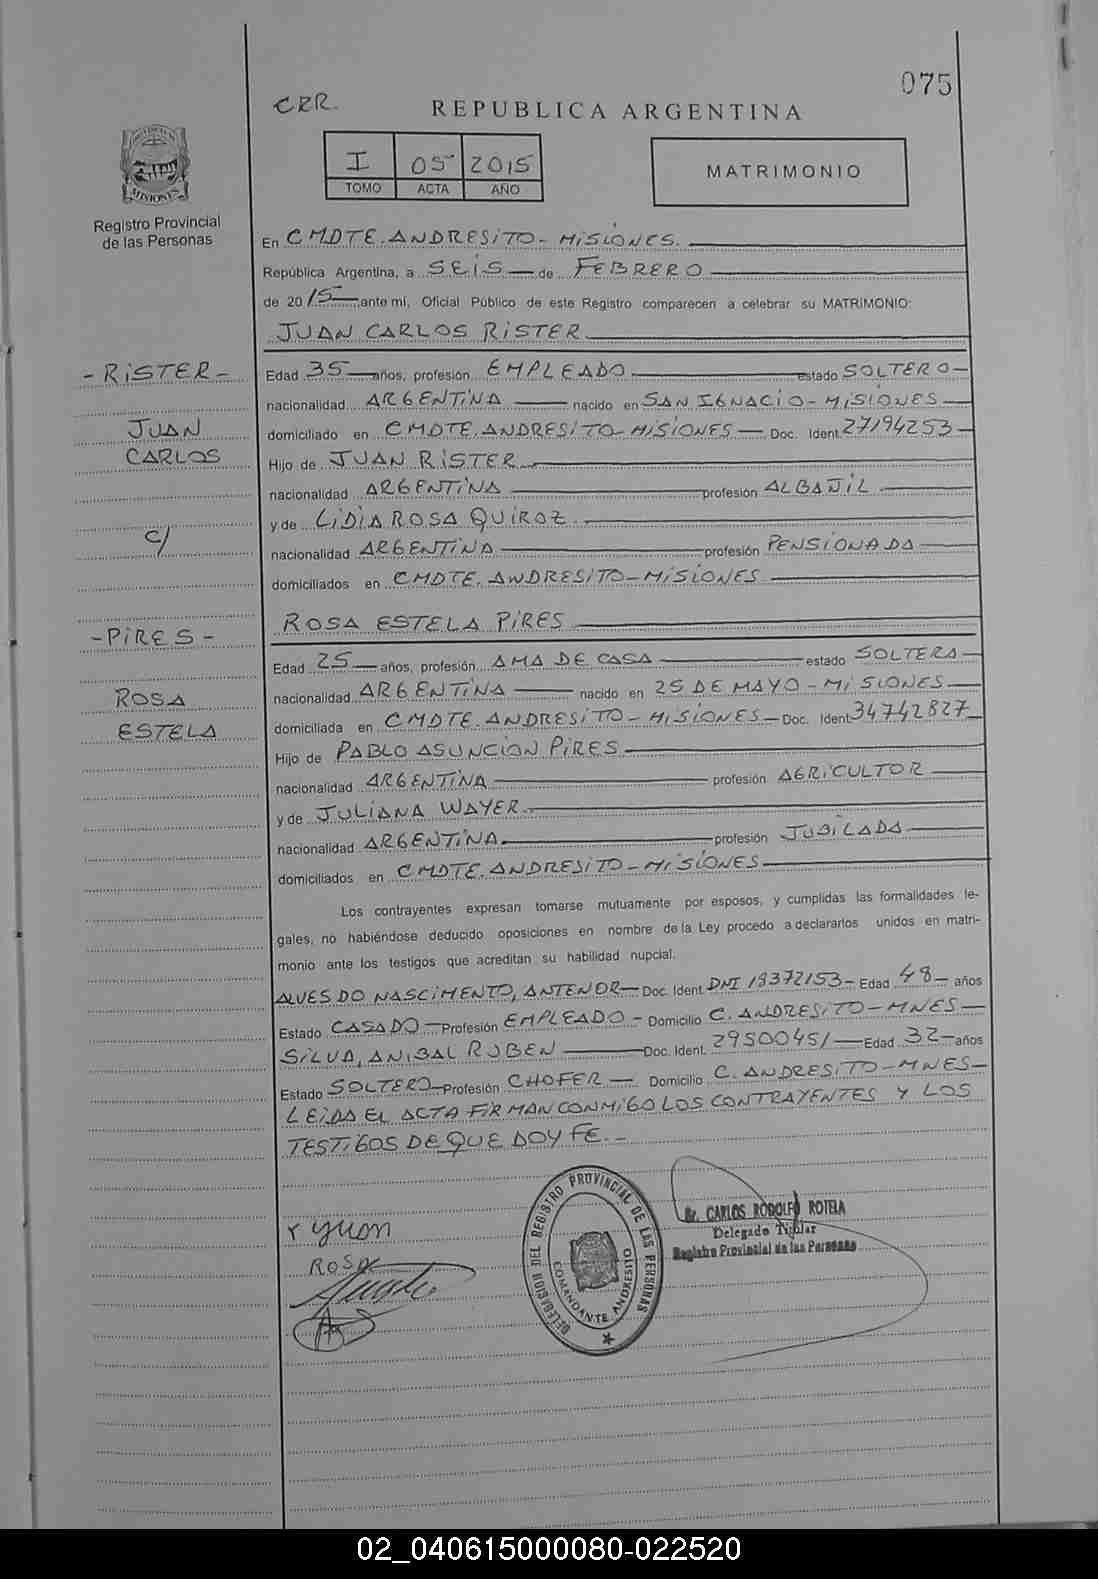 075
CRR.
REPUBLICA ARGENTINA
I 05 2015
TOMO ACTA AÑO
MATRIMONIO
PROVINCIA DE
MISIONES
Registro Provincial
de las Personas
En CMDTE. ANDRESITO - MISIONES.
República Argentina, a SEIS de FEBRERO
de 2015 ante mi, Oficial Público de este Registro comparecen a celebrar su MATRIMONIO:
JUAN CARLOS RISTER
- RISTER -
JUAN
CARLOS
c/
- PIRES -
ROSA
ESTELA
Edad 35 años, profesión EMPLEADO estado SOLTERO
nacionalidad ARGENTINA nacido en SAN IGNACIO - MISIONES
domiciliado en CMDTE. ANDRESITO - MISIONES - Doc. Ident. 27194253
Hijo de JUAN RISTER
nacionalidad ARGENTINA profesión ALBAÑIL
y de LIDIA ROSA QUIROZ
nacionalidad ARGENTINA profesión PENSIONADA
domiciliados en CMDTE. ANDRESITO - MISIONES
ROSA ESTELA PIRES
Edad 25 años, profesión AMA DE CASA estado SOLTERA
nacionalidad ARGENTINA nacido en 25 DE MAYO - MISIONES
domiciliada en CMDTE. ANDRESITO - MISIONES - Doc. Ident. 34742827
Hijo de PABLO ASUNCION PIRES
nacionalidad ARGENTINA profesión AGRICULTOR
y de JULIANA WAYER
nacionalidad ARGENTINA profesión JUBILADA
domiciliados en CMDTE. ANDRESITO - MISIONES
Los contrayentes expresan tomarse mutuamente por esposos, y cumplidas las formalidades le-
gales, no habiéndose deducido oposiciones en nombre de la Ley procedo a declararlos unidos en matri-
monio ante los testigos que acreditan su habilidad nupcial.
ALVES DO NASCIMENTO, ANTENOR - Doc. Ident. DNI 18372153 - Edad 48 años
Estado CASADO - Profesión EMPLEADO - Domicilio C. ANDRESITO - MNES
SILVA, ANIBAL RUBEN Doc. Ident. 29500451 Edad 32 años
Estado SOLTERO - Profesión CHOFER - Domicilio C. ANDRESITO - MNES
LEIDA EL ACTA FIRMAN CONMIGO LOS CONTRAYENTES Y LOS
TESTIGOS DE QUE DOY FE.-
DELEGACION DEL REGISTRO PROVINCIAL DE LAS PERSONAS
COMANDANTE ANDRESITO
CARLOS RODOLFO ROTELA
Delegado Titular
Registro Provincial de las Personas
x yuan
ROSA
02_040615000080-022520